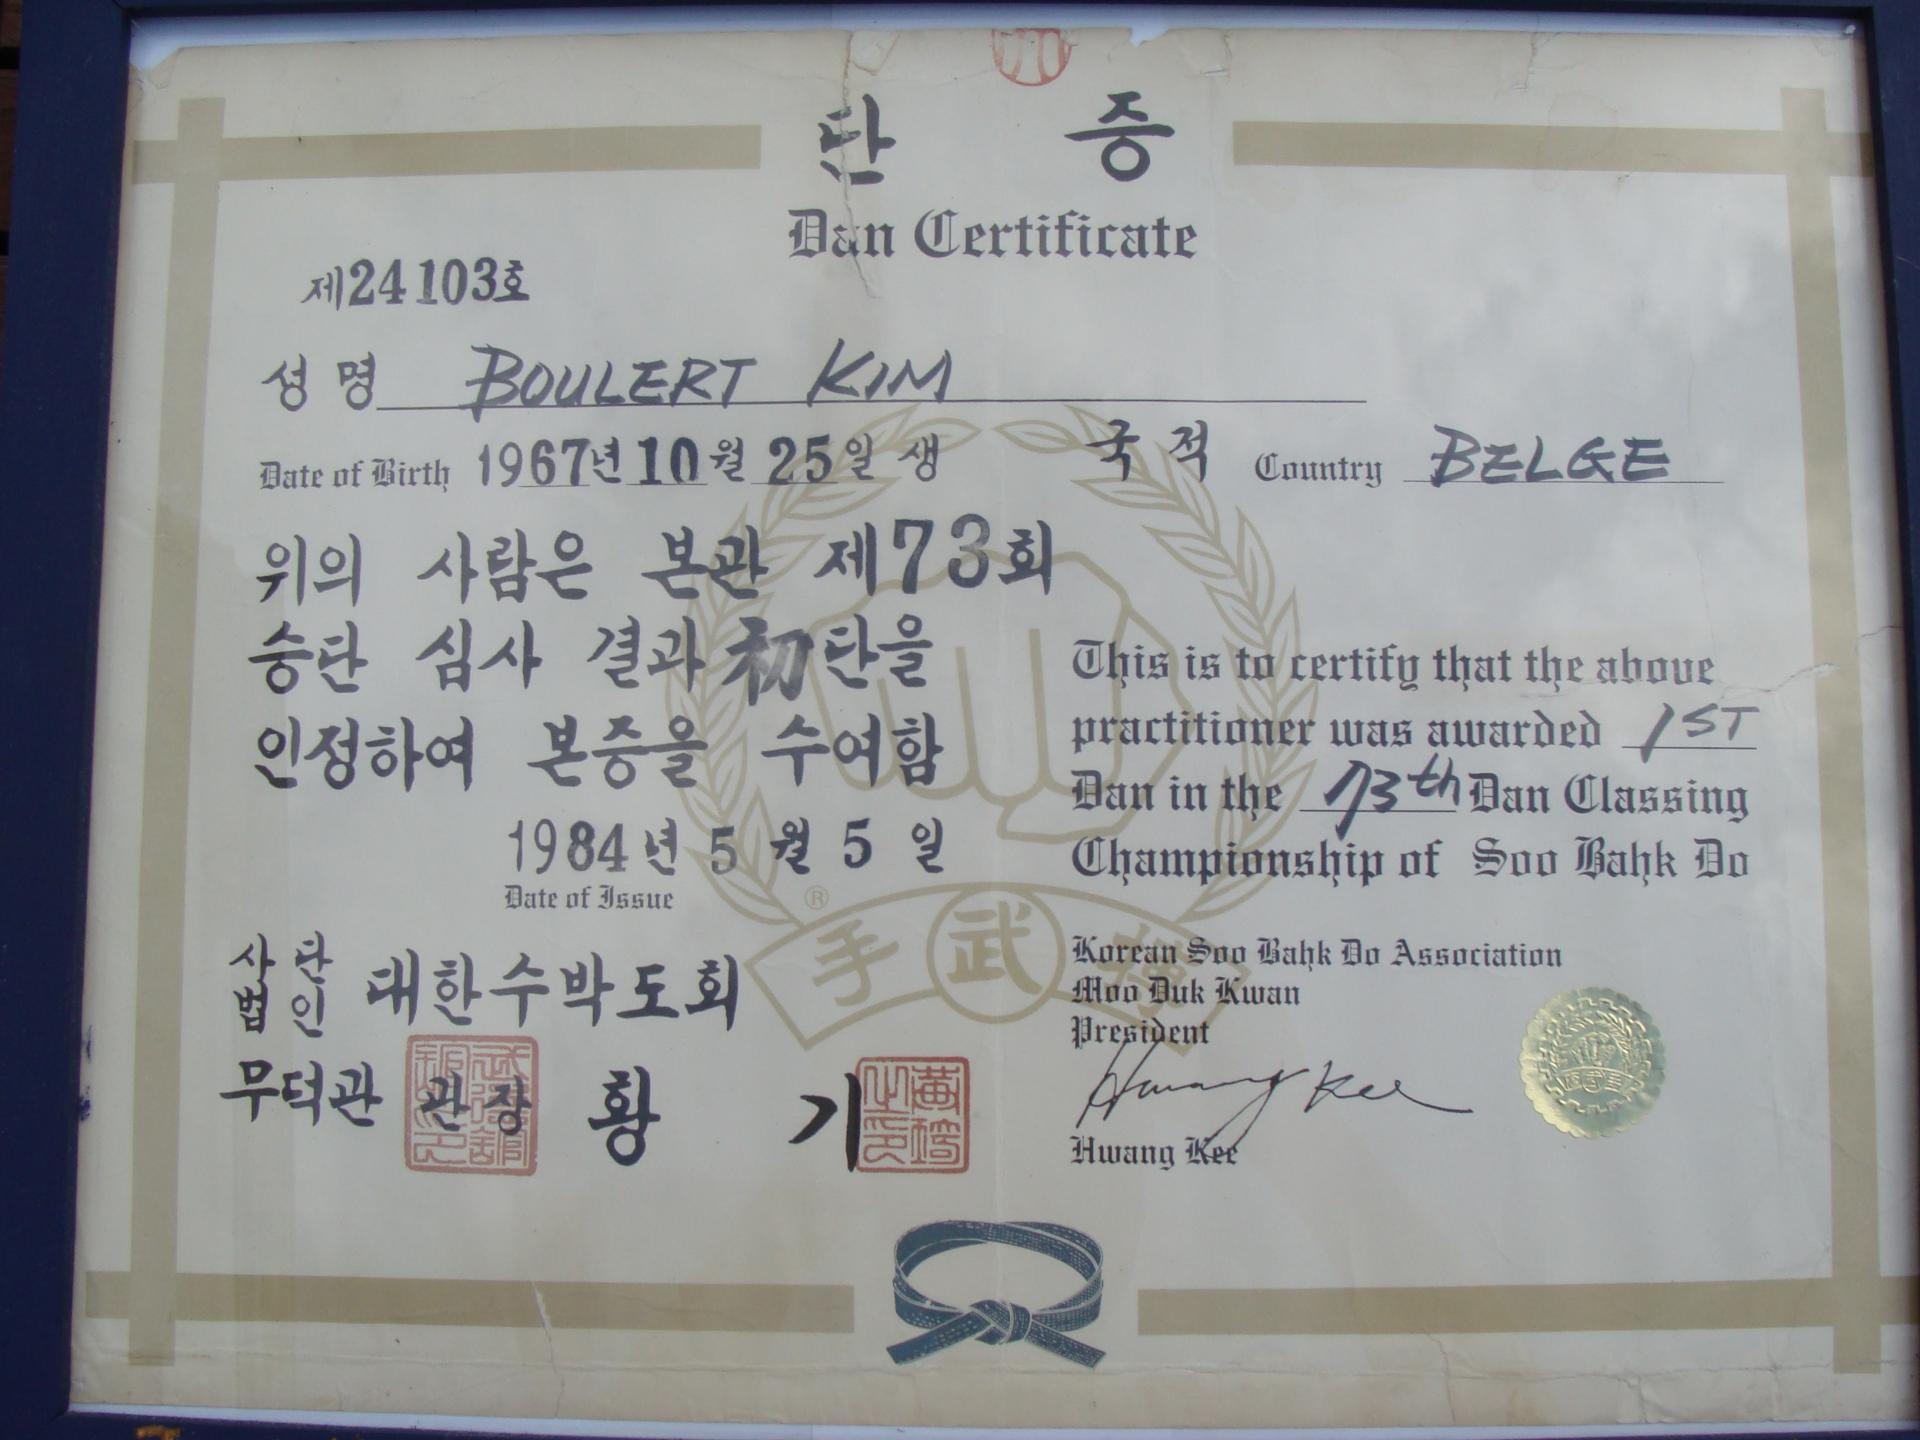 단 증
Dan Certificate
제24103호
성명 BOULERT KIM
Date of Birth 1967년 10월 25일 생 국적 Country BELGE
위의 사람은 본관 제73회
승단 심사 결과 初단을
인정하여 본증을 수여함
1984년 5월 5일
Date of Issue
This is to certify that the above
practitioner was awarded 1ST
Dan in the 73th Dan Classing
Championship of Soo Bahk Do
手 武 搏
®
사단법인 대한수박도회
무덕관 관장 황 기
Korean Soo Bahk Do Association
Moo Duk Kwan
President
Hwang Kee
Hwang Kee